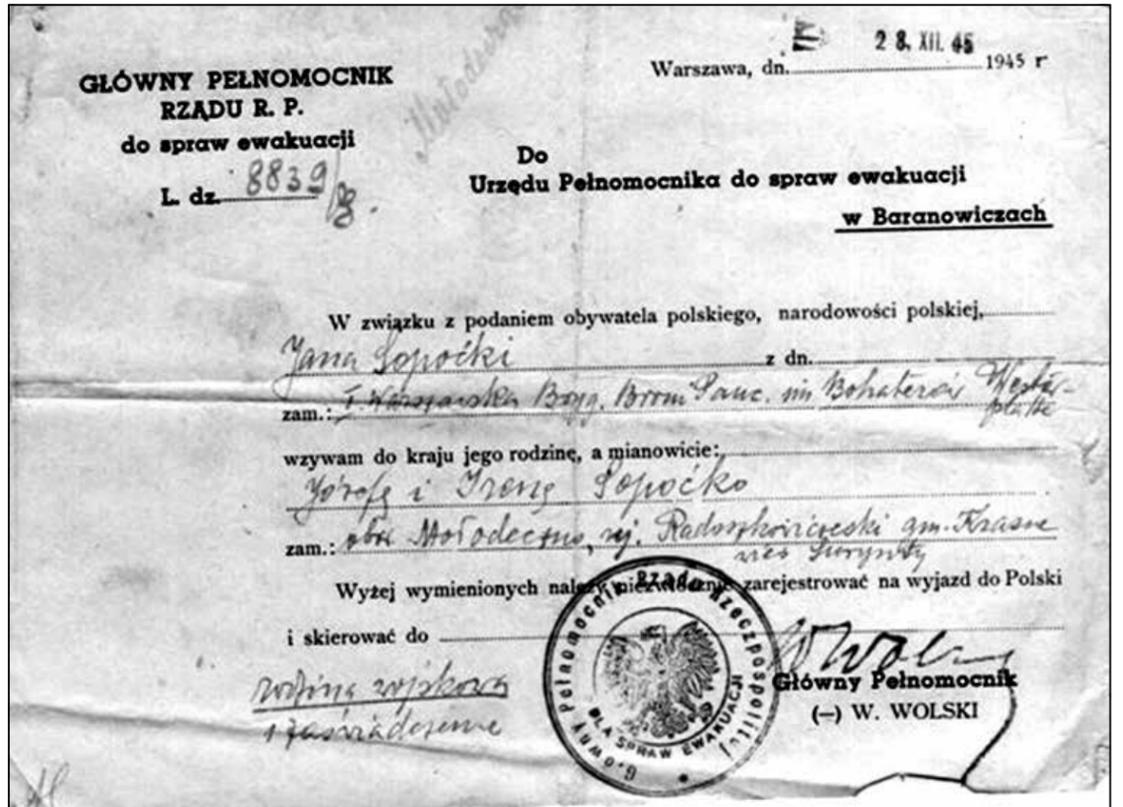 28. XII. 45
Warszawa, dn. 1945 r
GŁÓWNY PEŁNOMOCNIK
RZĄDU R. P.
do spraw ewakuacji
L. dz. 8839/
Do
Urzędu Pełnomocnika do spraw ewakuacji
w Baranowiczach
W związku z podaniem obywatela polskiego, narodowości polskiej,
Jana Sopoćki z dn.
zam.: I. Warszawska Bryg. Broni Panc. im Bohaterów Wester-
platte
wzywam do kraju jego rodzinę, a mianowicie:
Józefę i Irenę Sopoćko
zam.: obw. Mołodeczno, rej. Radoszkowiczeski gm. Krasne
wieś
Wyżej wymienionych należy niezwłocznie zarejestrować na wyjazd do Polski
i skierować do
Główny Pełnomocnik Rządu Rzeczpospolitej
DLA SPRAW EWAKUACJI
Główny Pełnomocnik
(—) W. WOLSKI
rodzina wojskowa
1 zaświadczenie